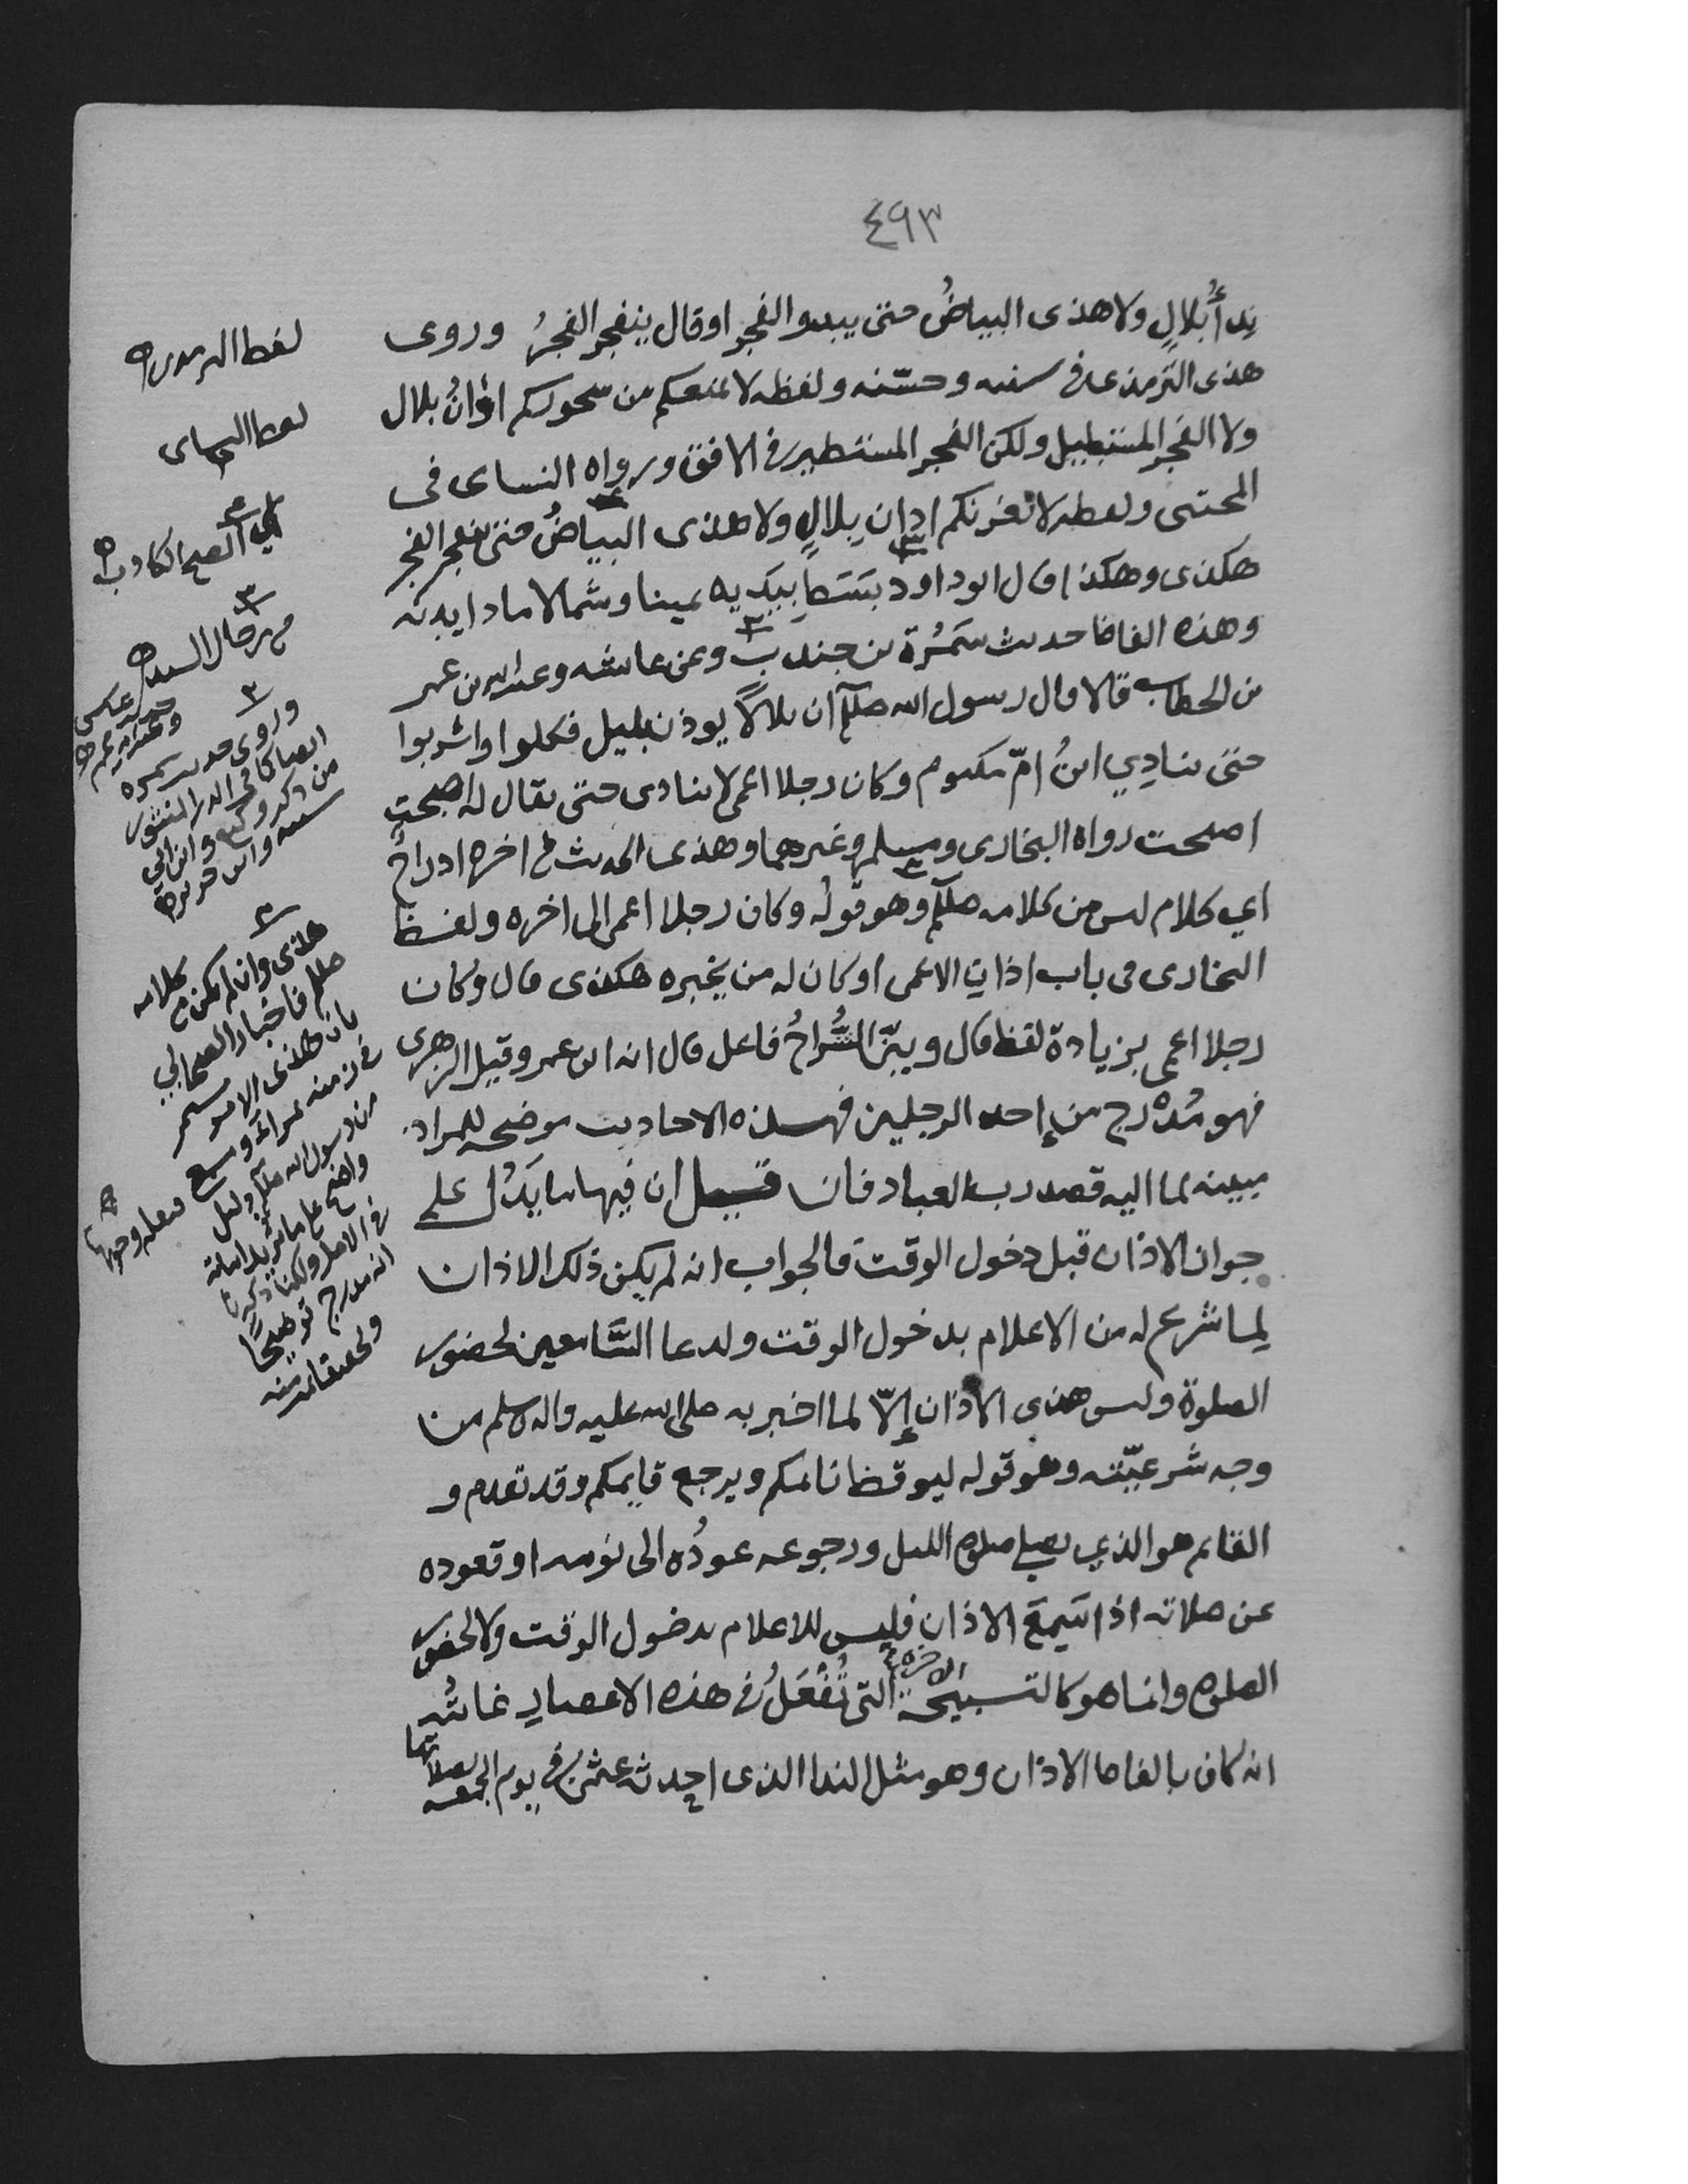 ٤٩٣
ندأُ بلالٍ ولا هذى البياضُ حتى يبدو الفجر او قال ينفجر الفجرُ وروى
هذى الترمذى فى سننه وحسّنه ولفظه لا يمنعكم من سحوركم اذانُ بلال
ولا الفجر المستطيل ولكن الفجر المستطير فى الافق ورواه النساى فى
المجتبى ولفظه لا تغرنكم اذان بلالٍ ولا هذى البياضُ حتى ينفجر الفجر
هكذى وهكذا قال ابو داود بَسَطَ بيَدَيه يمينا وشمالا مادا يديه
وهذه الفاظ حديث سَمُرَة بن جندبٍ وعن عائشه وعبدالله بن عمر
بن الخطاب قالا قال رسول الله صللم ان بلالاً يوذن بليل فكلوا واشربوا
حتى ينادِي ابنُ امّ مكتوم وكان رجلا اعمى لا ينادى حتى يقال له اصبحت
اصبحت رواه البخارى ومسلم وغيرهما وهذى الحديث فى اخره ادراجٌ
اي كلام ليس من كلامه صللم وهو قولُه وكان رجلا اعمى الى اخره ولفظ
البخارى فى باب اذان الاعمى او كان له من يخبره هكذى قال وكان
رجلا اعمى بزيادة لفظ قال وبيّن الشُّراحُ فاعل قال انه ابن عمر وقيل الزهرى
فهو مُدْرج من إحد الرجلين فهذه الاحاديث موضحه للمراد
مبينه لما اليه قصد رب العباد فان قيل ان فيها ما يَدُل على
جواز الاذان قبل دخول الوقت فالجواب انه لم يكن ذلك الاذان
لما شرع له من الاعلام بدخول الوقت ولدعا السَّامعين لحضور
الصلوة وليس هذى الاذان إلّا لما اخبر به صلى الله عليه واله وسلم من
وجه شرعيّته وهو قوله ليوقظ نائمكم ويرجع قايمكم وقد تقدم و
القائم هو الذي يصلي صلوه الليل ورجوعه عودُه الى نومه او قعوده
عن صلاته اذا سَمِعَ الاذان فليس للاعلام بدخول الوقت ولا لحضور
الصلوه وانما هو كالتسبيحه الاخره التى تُفْعَلُ فى هذه الاعصار غايتُه
انه كان بالفاظ الاذان وهو مثل الندا الذى احدثه عثمن فى يوم الجمعه لصلاتها
لفظ الترمدى
لفظ النساى
اي الصبح الكاذب
وروى حديث سمره
ايضا كما فى الدر المنثور
من ذكر وكيع وابن ابي
شيبه وابن جرير
هذى وان لم يكن من كلامه
صللم فاخبار الصحابي
بان هذى الامر مستمر
من رسول الله صللم دليل
واضح على ما نريد اثباته
فى الاصل ولكنا ذكرنا
انه مدرج توضيحًا